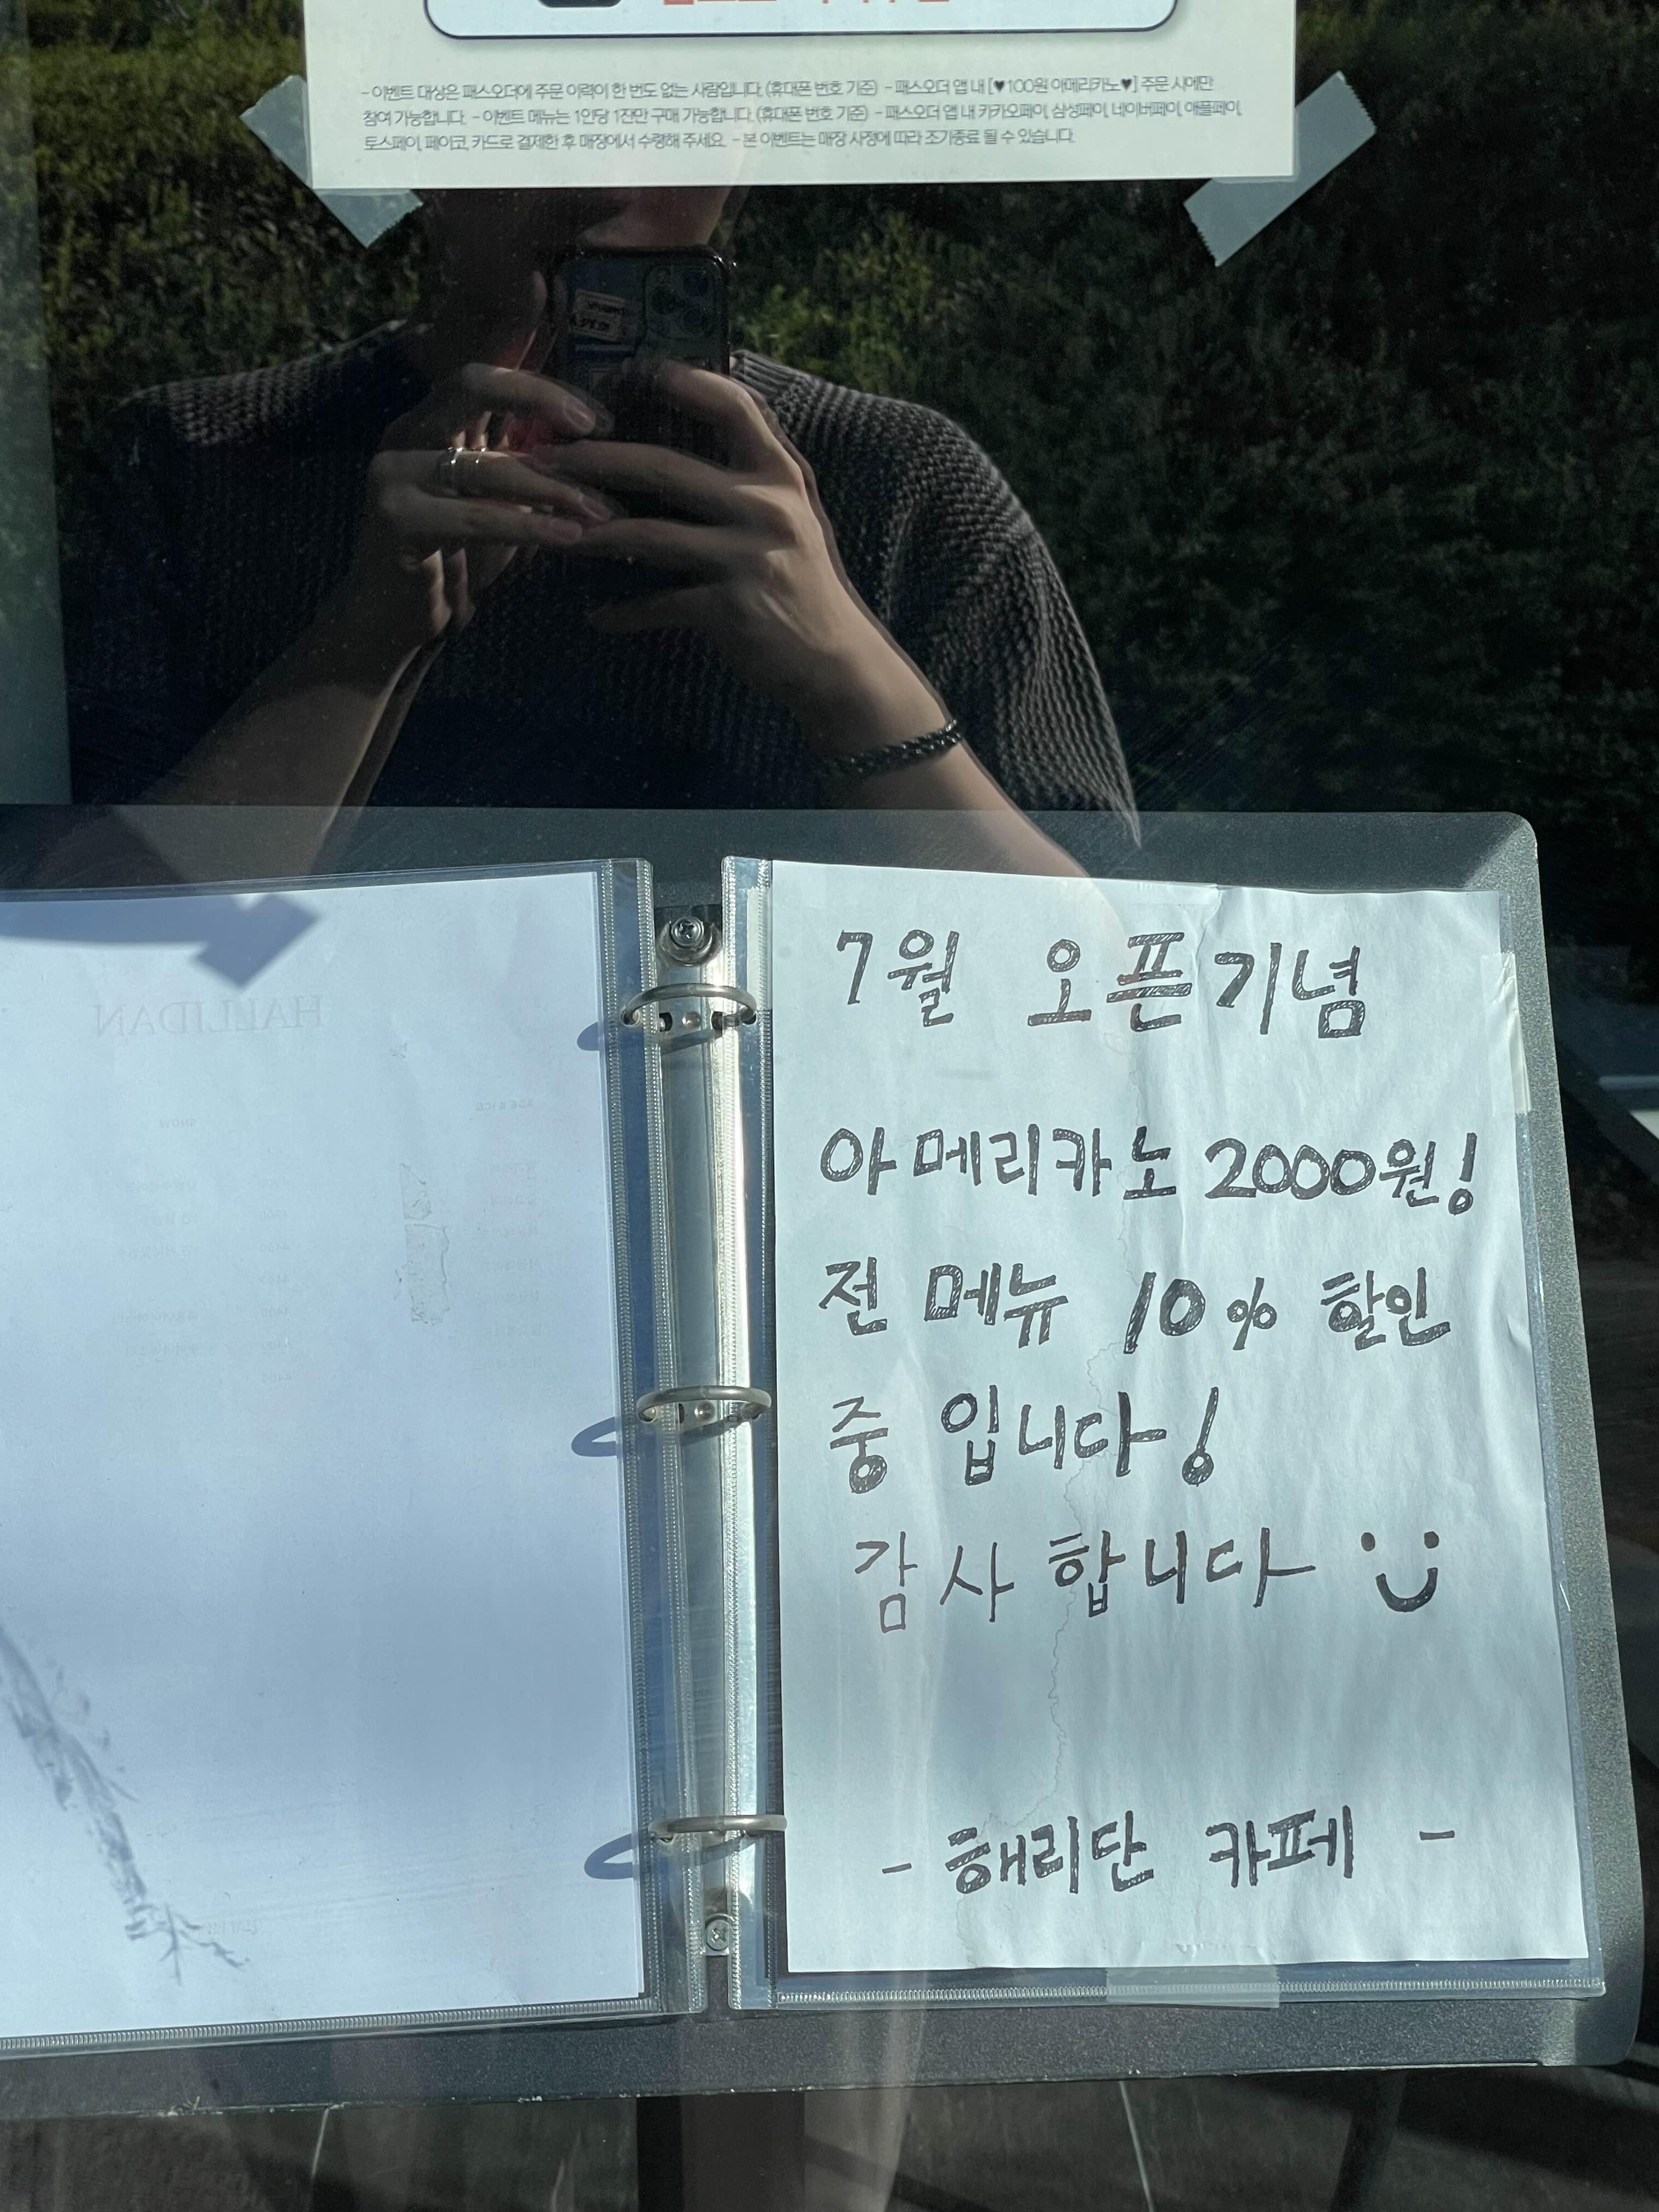 - 이벤트 대상은 패스오더에 주문 이력이 한 번도 없는 사람입니다. (휴대폰 번호 기준) - 패스오더 앱 내 [♥100원 아메리카노♥] 주문 시에만
참여 가능합니다. - 이벤트 메뉴는 1인당 1잔만 구매 가능합니다. (휴대폰 번호 기준) - 패스오더 앱 내 카카오페이, 삼성페이, 네이버페이, 애플페이,
토스페이, 페이코, 카드로 결제한 후 매장에서 수령해 주세요. - 본 이벤트는 매장 사정에 따라 조기종료 될 수 있습니다.
HALLIDAN
7월 오픈기념
아메리카노 2000원!
전 메뉴 10% 할인
중 입니다!
감사 합니다 :)
- 해리단 카페 -